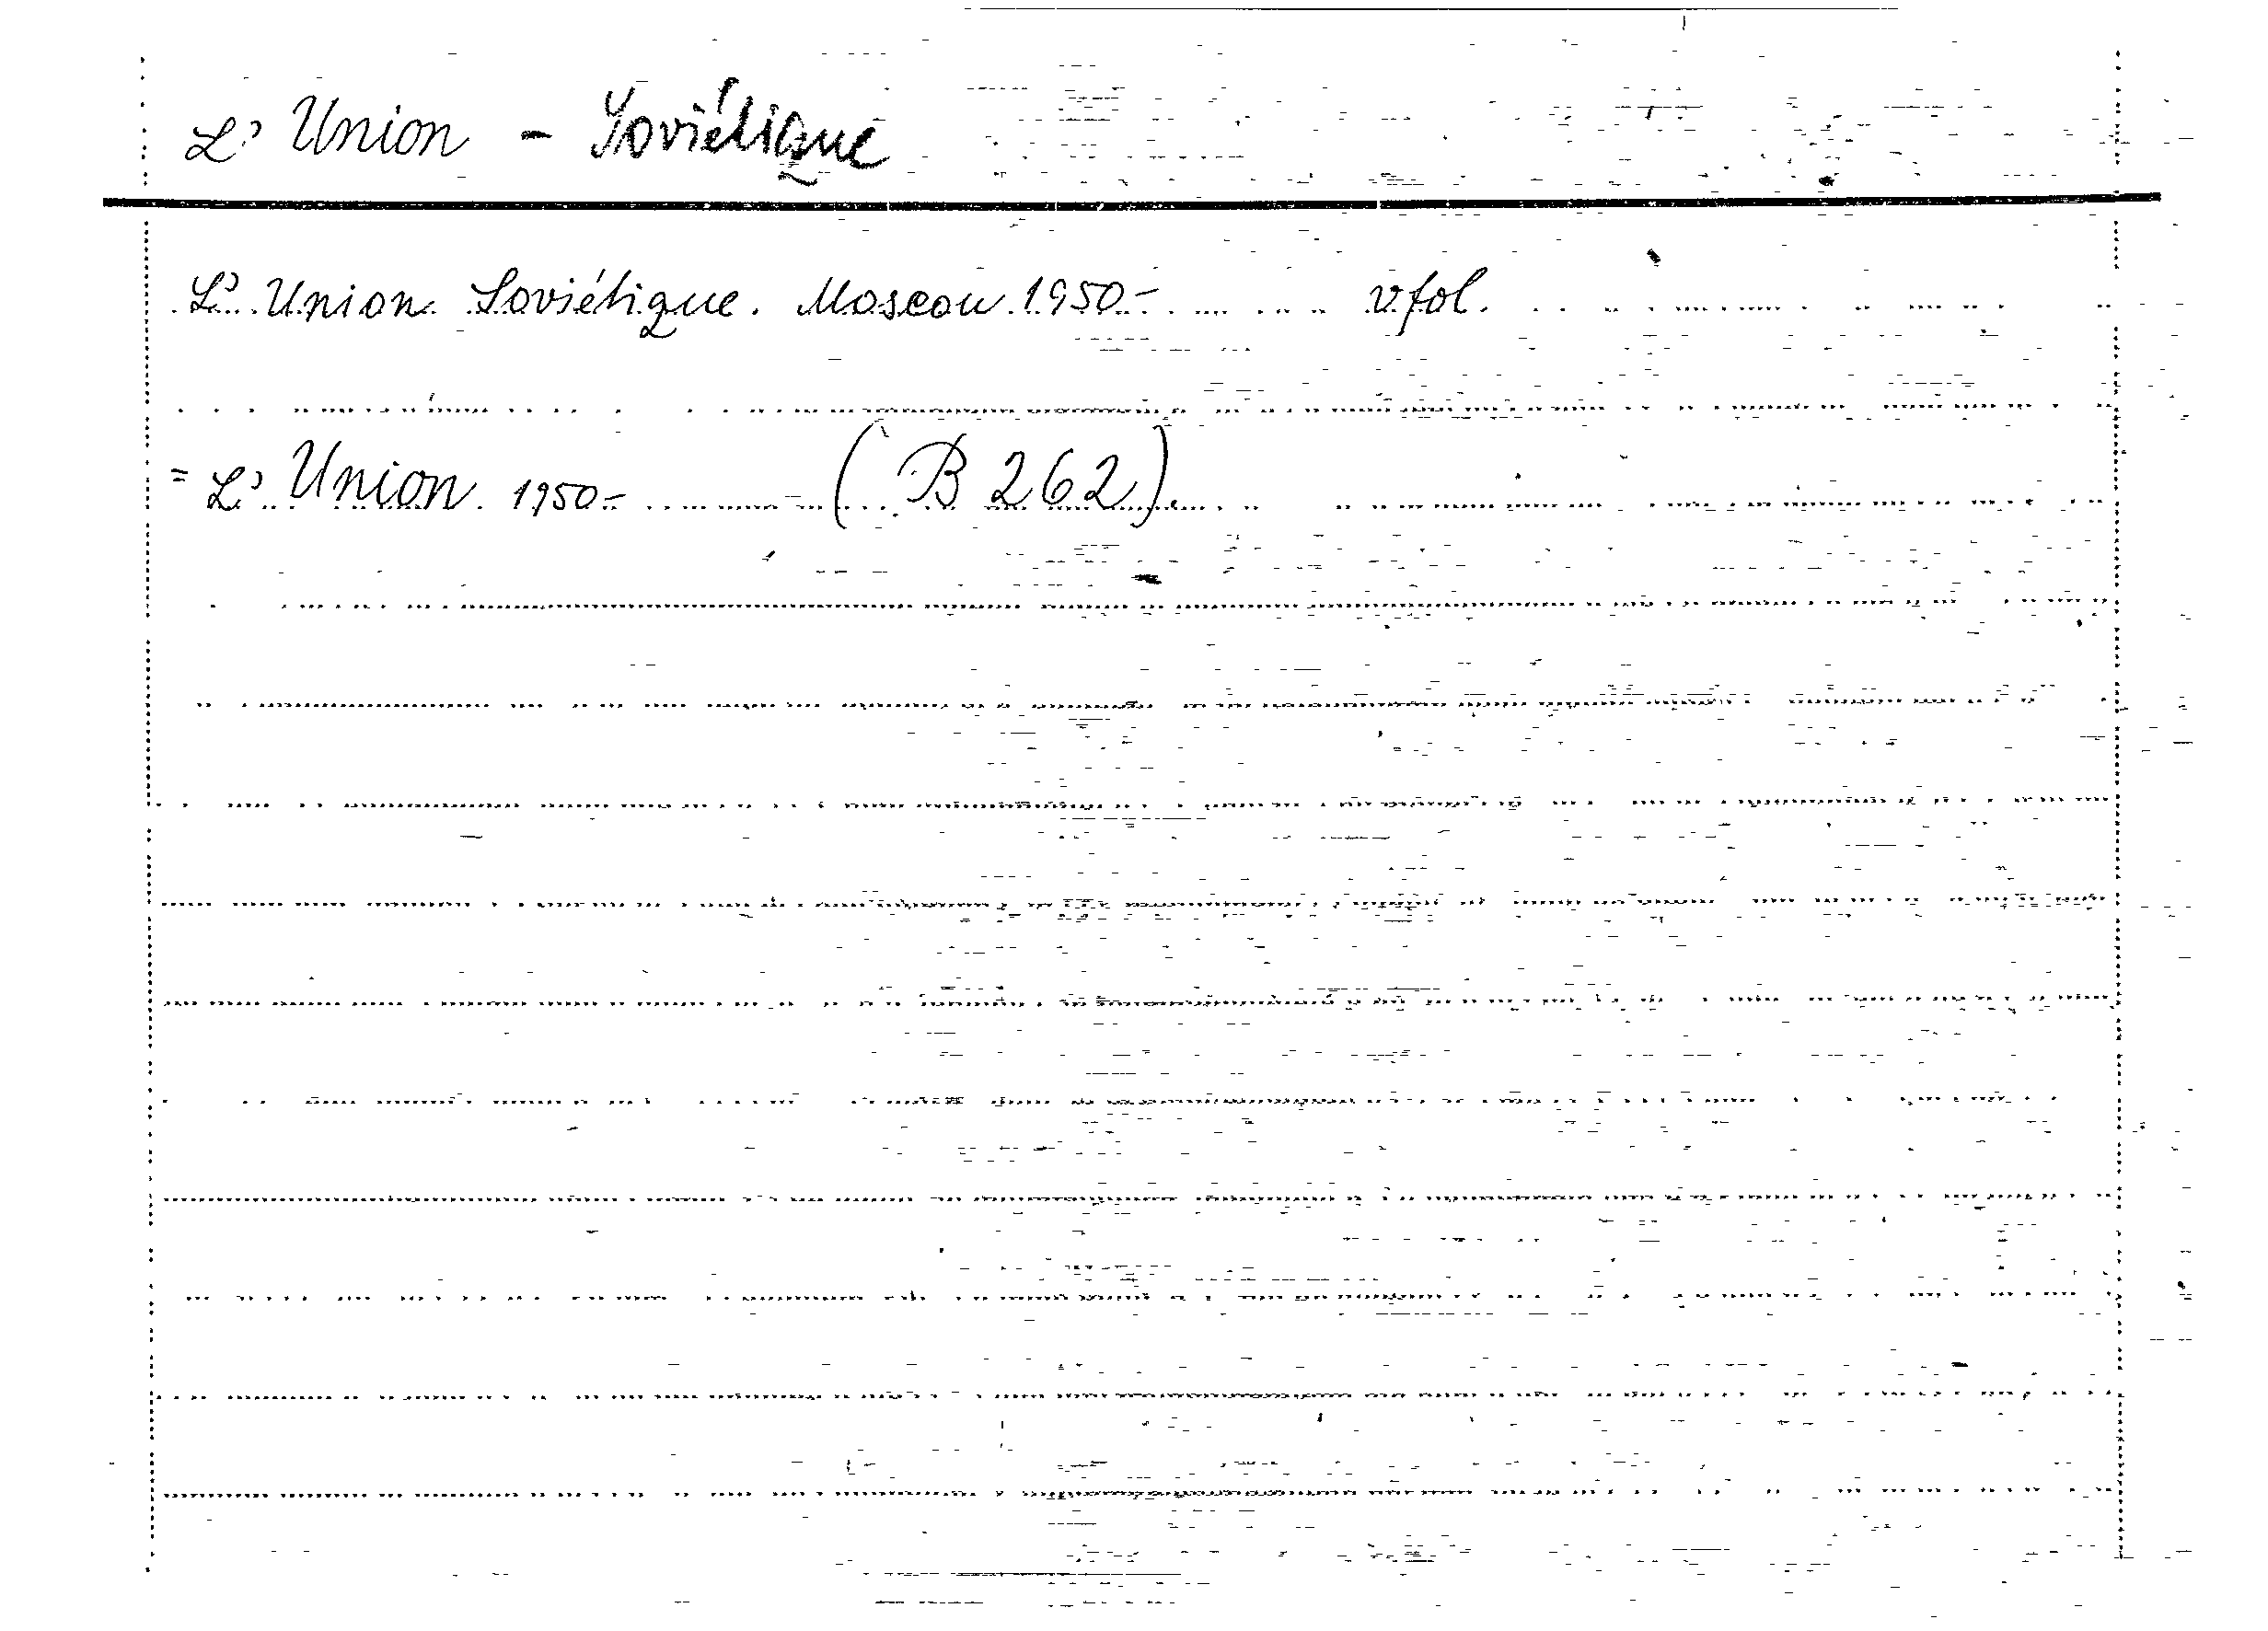 L' Union - Soviétique
L' Union Soviétique. Moscou 1950- vfol.
= L' Union 1950- (B 262).